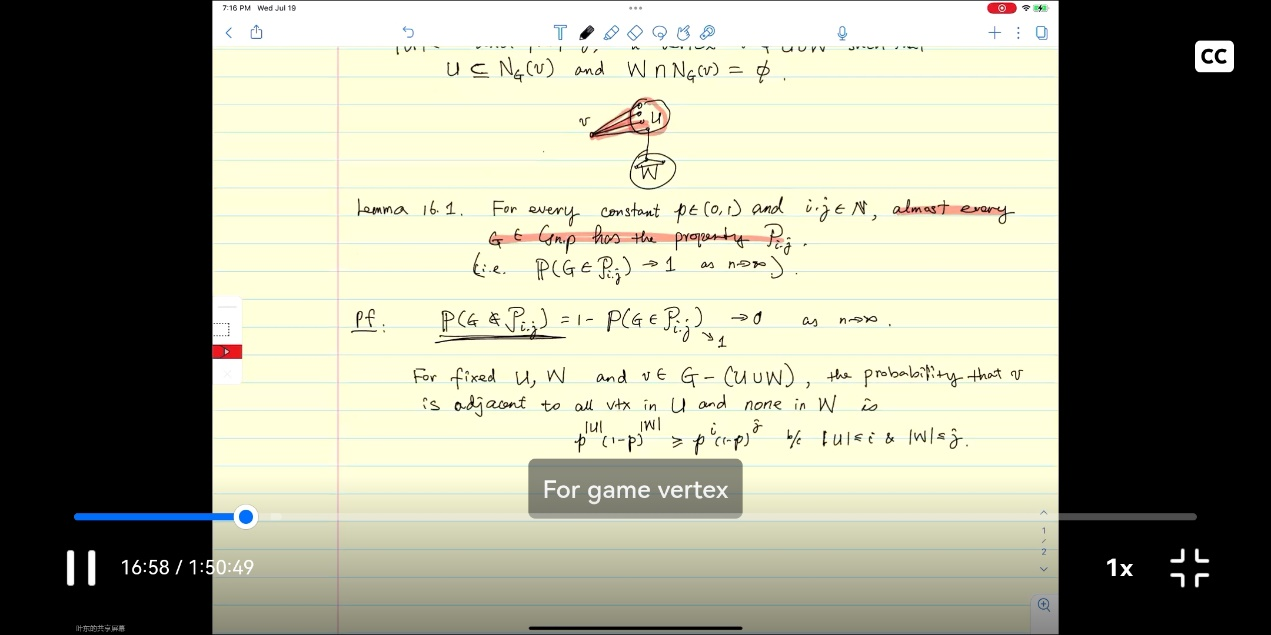 7:16 PM Wed Jul 19
CC
U ⊆ N_G(v) and W ∩ N_G(v) = ϕ.
v U
W
Lemma 16.1. For every constant p∈(0,1) and i,j ∈ N, almost every
G ∈ G_{n,p} has the property P_{i,j}.
(i.e. P(G ∈ P_{i,j}) → 1 as n→∞).
Pf: P(G ∉ P_{i,j}) = 1 - P(G ∈ P_{i,j}) → 0 as n→∞.
↘ 1
For fixed U, W and v ∈ G - (U∪W), the probability that v
is adjacent to all vtx in U and none in W is
p^{|U|}(1-p)^{|W|} ≥ p^i(1-p)^j b/c |U| ≤ i & |W| ≤ j.
For game vertex
1
/
2
16:58 / 1:50:49
1x
叶东的共享屏幕